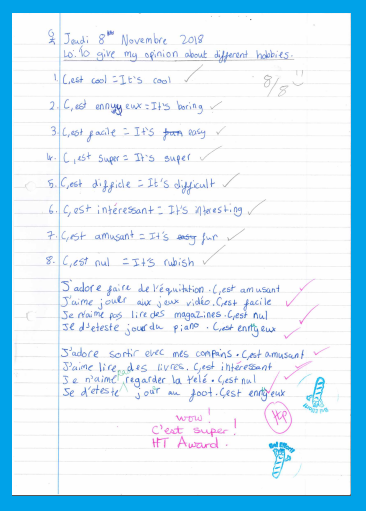 Jeudi 8 Novembre 2018
Lo: To give my opinion about different hobbies.
1. C,est cool = It's cool
8/8
2. C,est ennuyeux = It's boring
3. C,est facile = It's fun easy
4. C,est super = It's super
5. C,est difficle = It's difficult
6. C,est intéressant = It's interesting
7. C,est amusant = It's easy fun
8. C,est nul = It's rubish
J'adore faire de l'équitation. C,est amusant
J'aime jouer aux jeux vidéo. C,est facile
Je n'aime pas lire des magazines. C,est nul
Je d'eteste jouer du piano. C,est ennyeux
J'adore sortir avec mes compains. C,est amusant
J'aime lire des livres. C,est intéressant
Je n'aime regarder la télé. C,est nul
Je d'eteste jour au foot. C,est ennyeux
HP
wow!
C'est super!
HT Award.